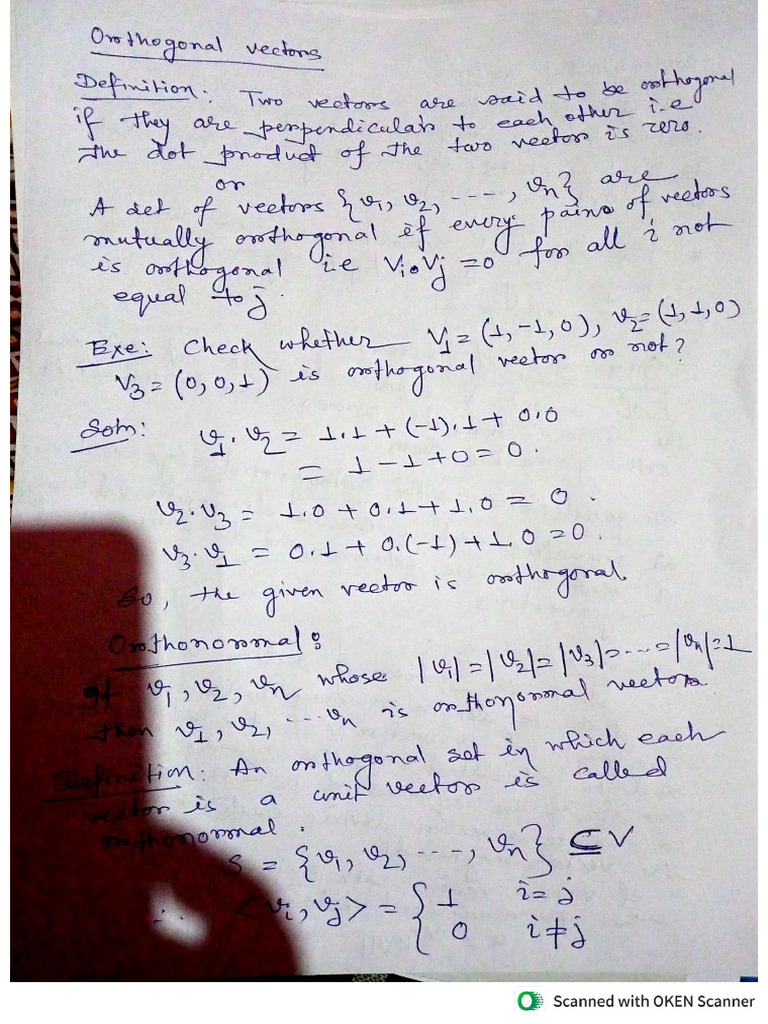 Orthogonal vectors
Definition: Two vectors are said to be orthogonal
if they are perpendicular to each other i.e
the dot product of the two vector is zero.
or
A set of vectors {v₁, v₂, ----, vₙ} are
mutually orthogonal if every pairs of vectors
is orthogonal i.e Vᵢ∘Vⱼ = 0 for all i not
equal to j.
Exe: Check whether V₁ = (1, -1, 0), v₂ = (1, 1, 0)
V₃ = (0, 0, 1) is orthogonal vector or not?
Soln: v₁ · v₂ = 1.1 + (-1).1 + 0.0
= 1 - 1 + 0 = 0.
v₂ · v₃ = 1.0 + 0.1 + 1.0 = 0.
v₃ · v₁ = 0.1 + 0.(-1) + 1.0 = 0.
So, the given vector is orthogonal.
Orthonormal:
If v₁, v₂, vₙ whose |v₁| = |v₂| = |v₃| = --- = |vₙ| = 1
then v₁, v₂, ---vₙ is orthonormal vectors
Definition: An orthogonal set in which each
vector is a unit vector is called
orthonormal.
S = {v₁, v₂, ----, vₙ} ⊆ V
∴ <vᵢ, vⱼ> = { 1 i = j
0 i ≠ j
Scanned with OKEN Scanner